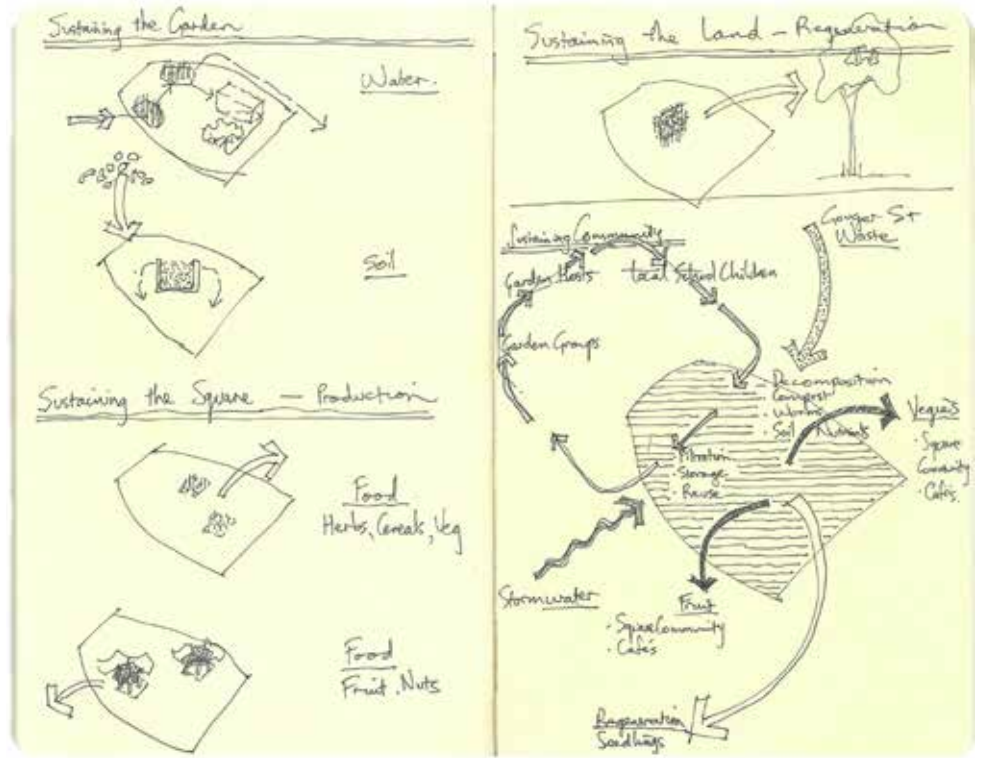 Sustaining the Garden
Water.
Soil
Sustaining the Square — Production
Food
Herbs, Cereals, Veg
Food
Fruit, Nuts
Sustaining the Land — Regeneration
Sustaining Community
Garden Hosts
Local School Children
Garden Groups
Gouger St
Waste
· Decomposition
· Compost
· Worms
· Soil Nutrients
· Filtration
· Storage
· Reuse
Veggies
· Square
Community
· Cafés.
Stormwater
Fruit
· Square Community
· Cafés
Regeneration
Seedlings